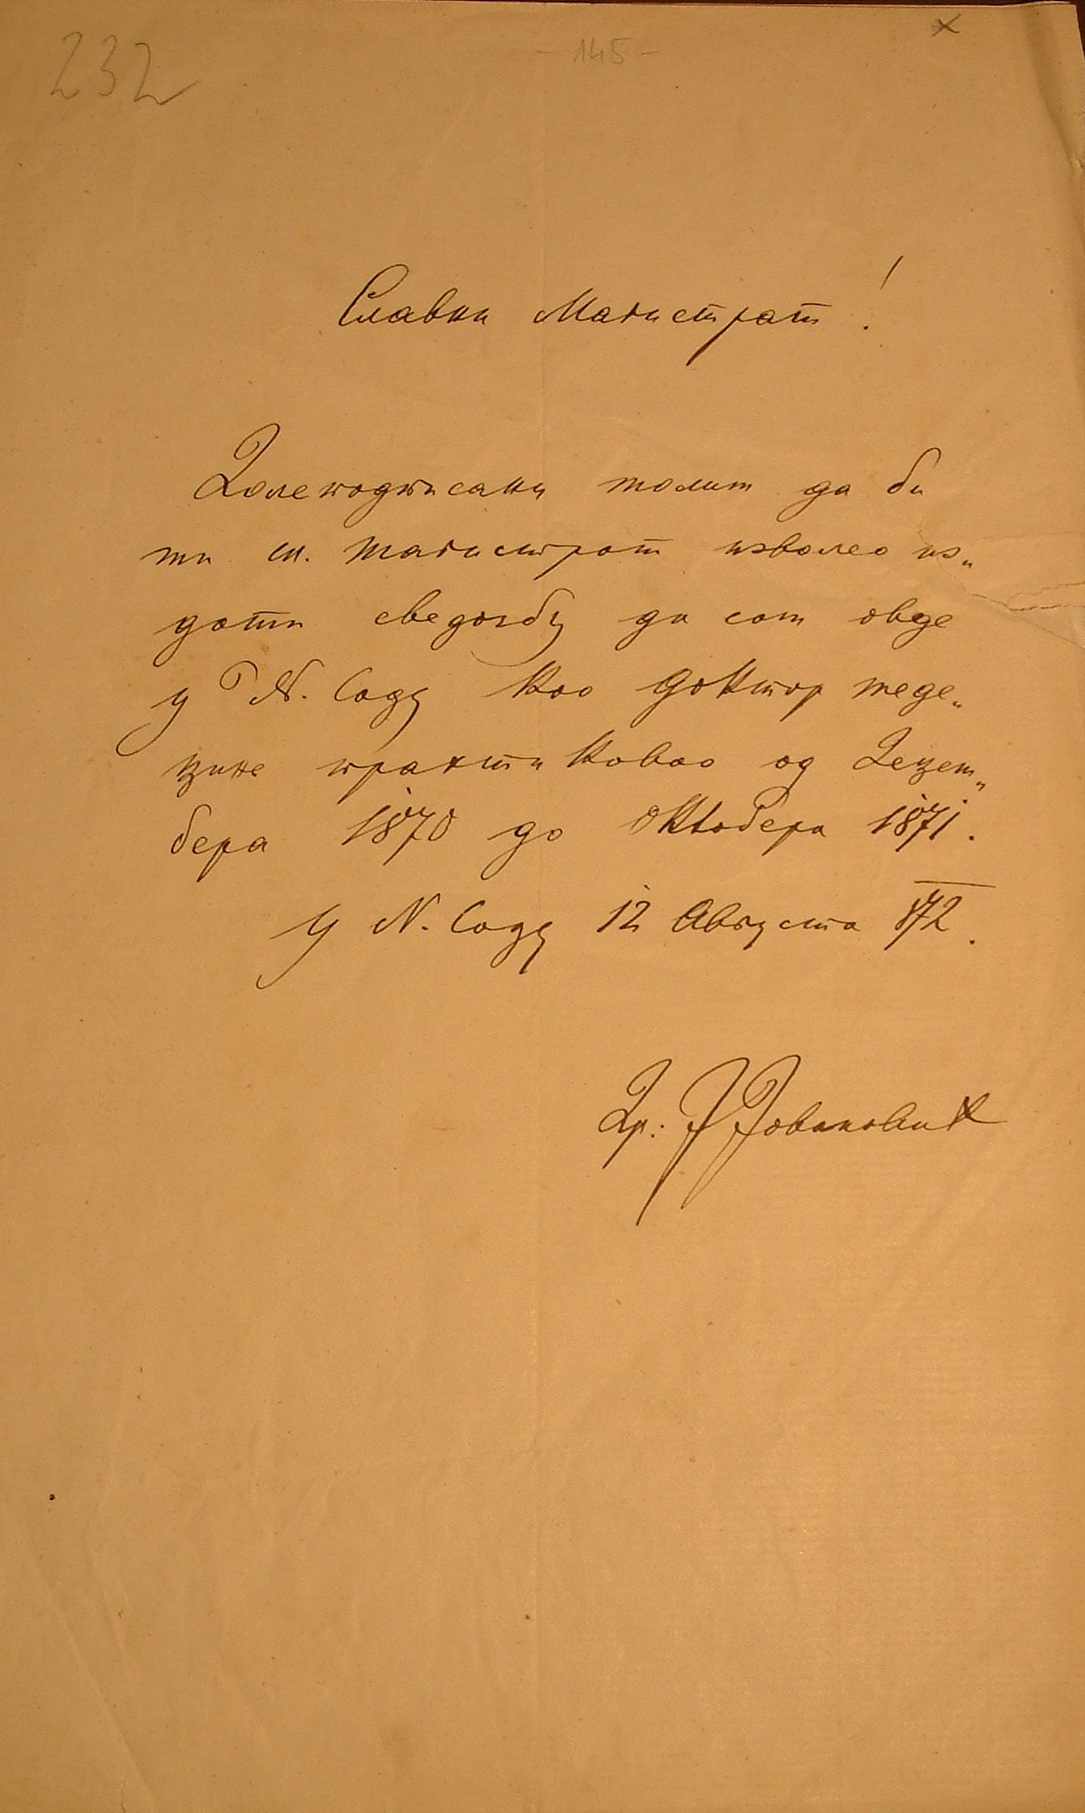 232
- 145 -
x
Славни Магистрат!
Долеподписани молим да би
ми сл. магистрат изволео из„
дати сведоџбу да сам овде
у N. Саду као доктор меде„
цине практиковао од Децем„
бера 1870 до Октобера 1871.
У N. Саду 12 Августа 872.
Др: J Јовановић